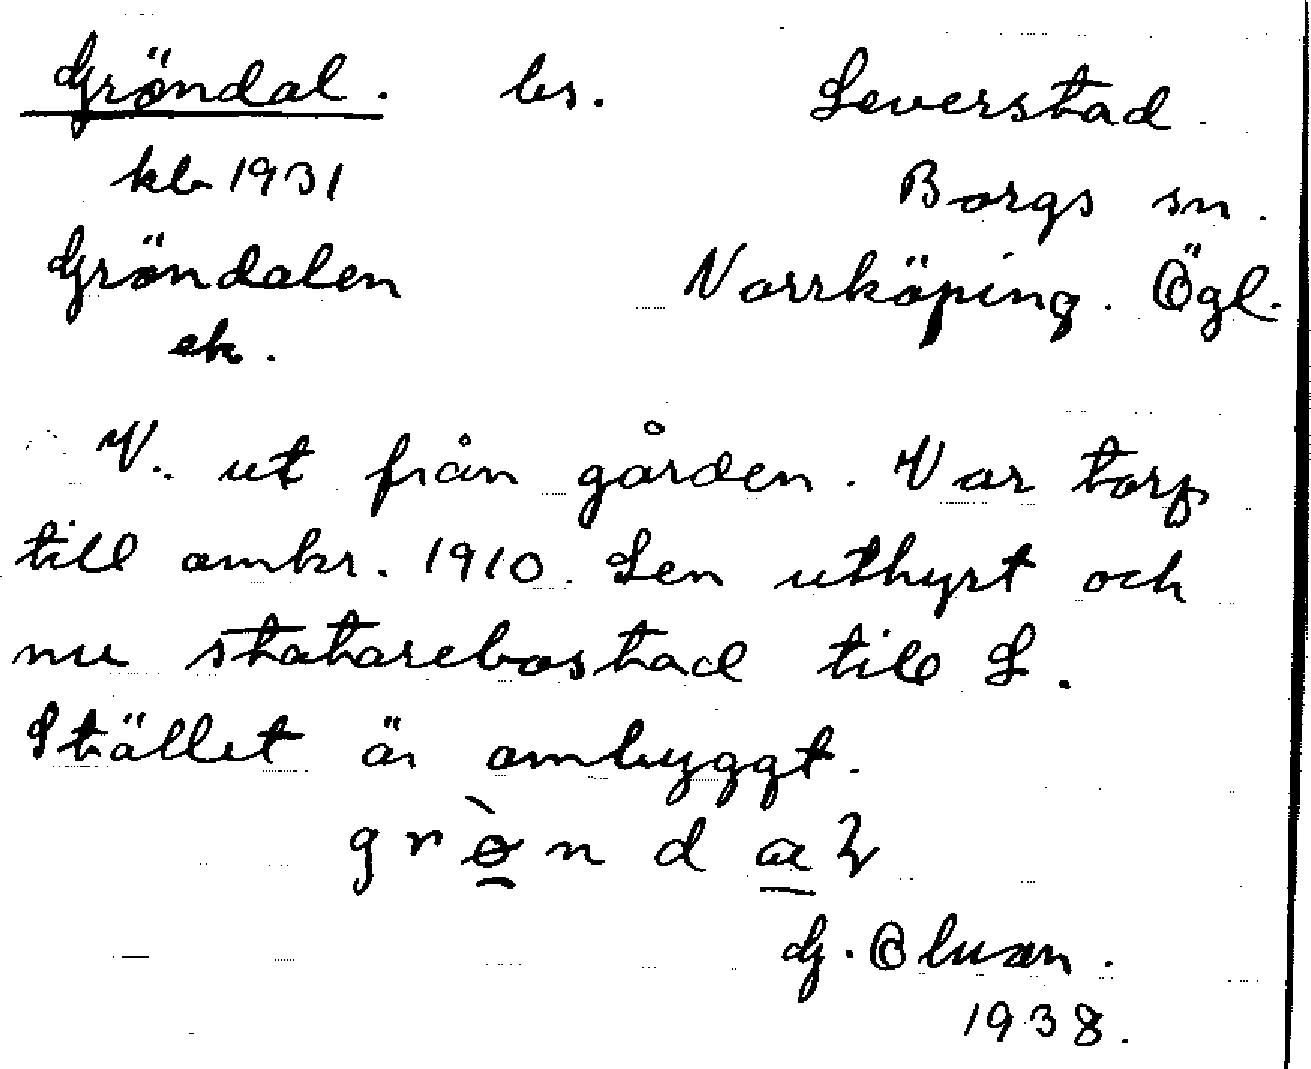 Gröndal. bs. Leverstad
kb 1931 Borgs sn.
Gröndalen Norrköping. Ögl.
ek.
V. ut från gården. Var torp
till omkr. 1910. Sen uthyrt och
nu statarebostad till L.
Stället är ombyggt.
grø̀nda
G.
1938.